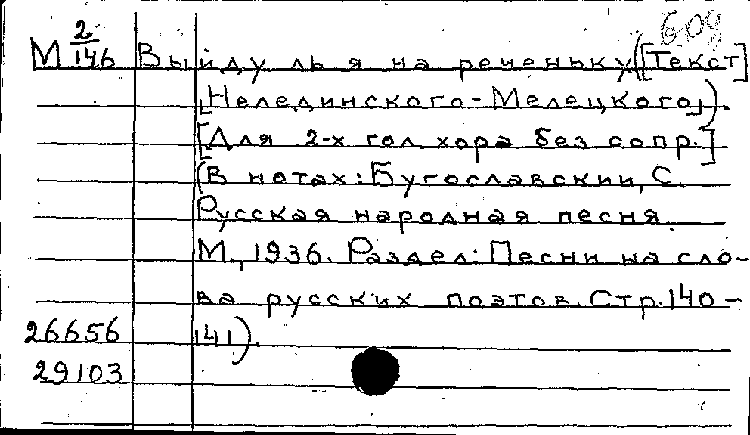 609
М 2/146 Выйду ль я на реченьку ([Текст]
[Нелединского-Мелецкого]).
[Для 2-х гол. хора без сопр.]
(В нотах: Бугославский, С.
Русская народная песня.
М., 1936. Раздел: Песни на сло-
ва русских поэтов. Стр. 140-
26656 141).
29103